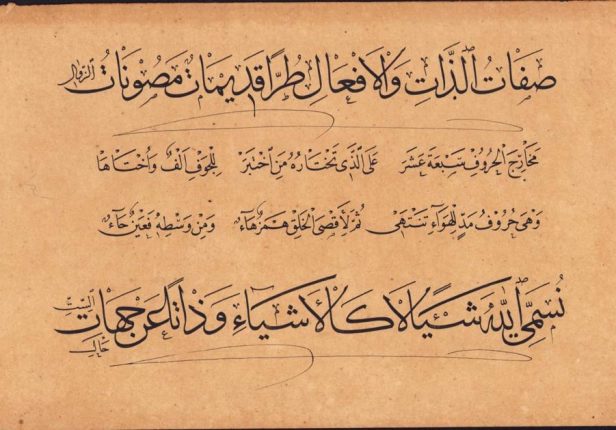 صِفَاتُ الذَّاتِ وَالْاَفْعَالِ طُرًّا قَدِيمَاتٌ مَصُونَاتُ الزَّوَالِ
مَخَارِجُ الْحُرُوفِ سَبْعَةَ عَشَرَ عَلَى الَّذِي تَخْتَارُهُ مَنِ اخْتَبَرَ لِلْجَوْفِ اَلْفٌ وَاُخْتَاهَا
وَهِيَ حُرُوفُ مَدٍّ لِلْهَوَاءِ تَنْتَهِي ثُمَّ لِأَقْصَى الْحَلْقِ هَمْزٌ هَاءٌ وَمِنْ وَسْطِهِ فَعَيْنٌ حَاءٌ
نُسَمِّي اللّٰهَ شَيْئًا لَا كَالْأَشْيَاءِ وَذَاتًا عَنْ جِهَاتِ السِّتِّ خَالِ